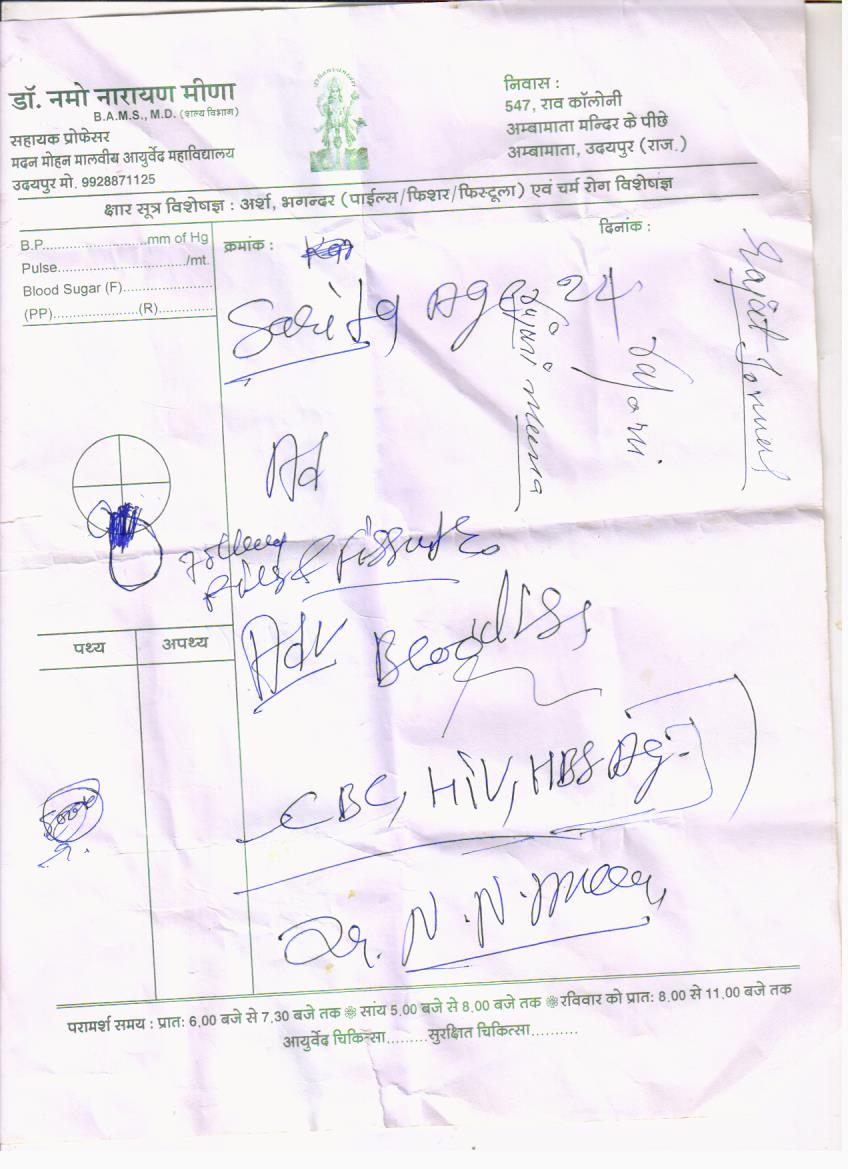 डॉ. नमो नारायण मीणा
B.A.M.S., M.D. (शल्य विभाग)
सहायक प्रोफेसर
मदन मोहन मालवीय आयुर्वेद महाविद्यालय
उदयपुर मो. 9928871125
Dhanvantari
निवास :
547, राव कॉलोनी
अम्बामाता मन्दिर के पीछे
अम्बामाता, उदयपुर (राज.)
क्षार सूत्र विशेषज्ञ : अर्श, भगन्दर (पाईल्स/फिशर/फिस्टूला) एवं चर्म रोग विशेषज्ञ
B.P........................mm of Hg
Pulse............................./mt.
Blood Sugar (F)......................
(PP).....................(R).............
क्रमांक :
दिनांक :
Sarita Age 24
Rajani meena
Rajani
Rajat
Ad
Piles & Fissure
Adv Blood
CBC, HIV, HBSAg
Dr. N. N. Meena
पथ्य
अपथ्य
परामर्श समय : प्रात: 6.00 बजे से 7.30 बजे तक ❋ सांय 5.00 बजे से 8.00 बजे तक ❋ रविवार को प्रात: 8.00 से 11.00 बजे तक
आयुर्वेद चिकित्सा.........सुरक्षित चिकित्सा..........